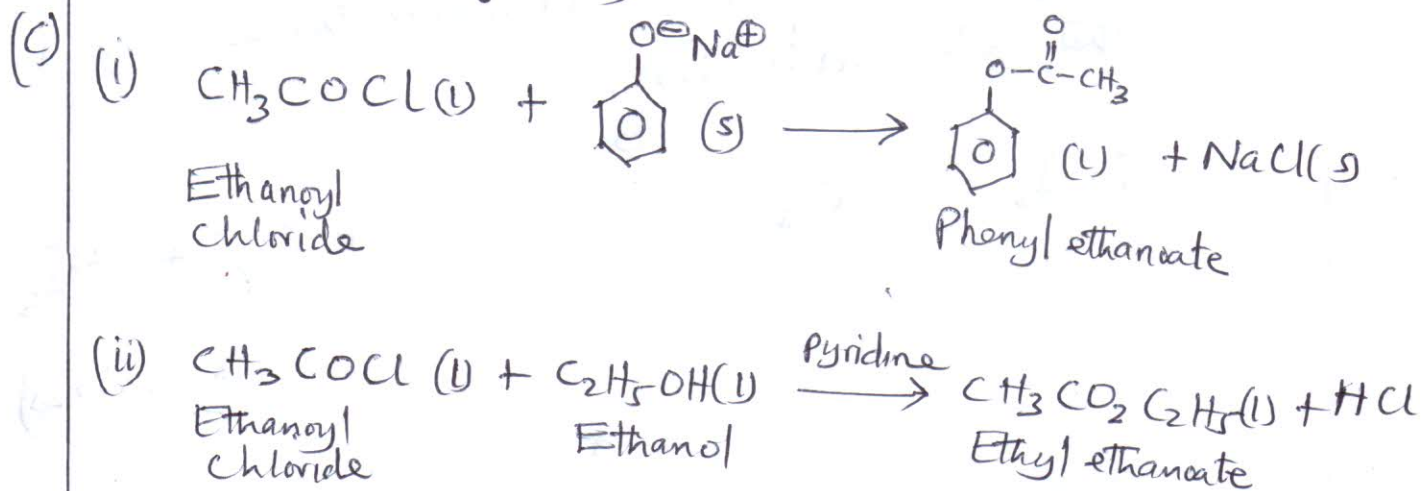 (C) (i) CH₃COCl(l) + O⊖Na⊕ (s) ⟶ O-C-CH₃ O (l) + NaCl(s)
Ethanoyl
chloride
Phenyl ethanoate
(ii) CH₃COCl (l) + C₂H₅-OH(l) Pyridine ⟶ CH₃CO₂C₂H₅(l) + HCl
Ethanoyl
chloride
Ethanol
Ethyl ethanoate